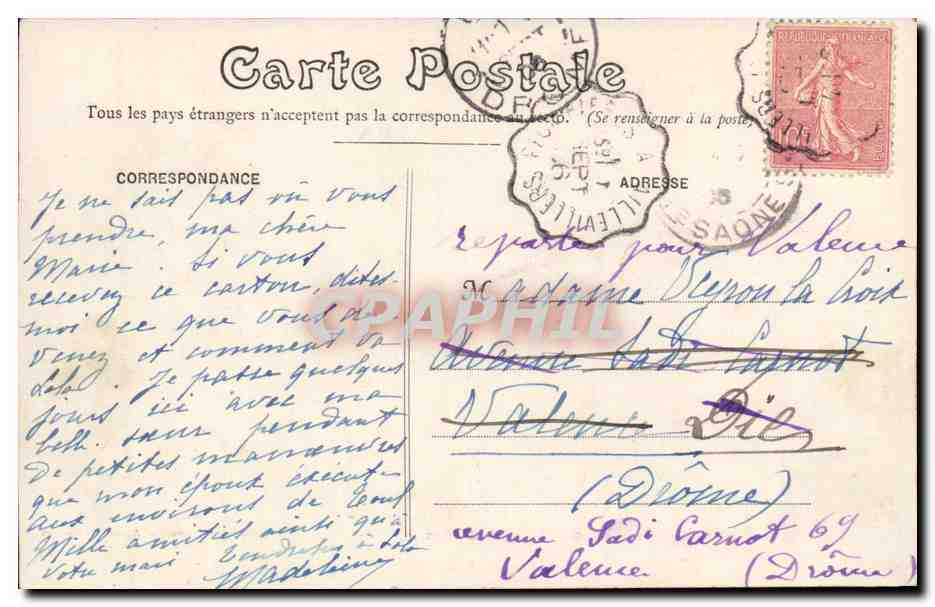 Carte Postale
Tous les pays étrangers n'acceptent pas la correspondance au recto. (Se renseigner à la poste)
REPUBLIQUE FRANÇAISE
10
SEPT
06
DROME
SAONE
CORRESPONDANCE
ADRESSE
Je ne sais pas où vous
prendre, ma chère
Marie. Si vous
recevez ce carton, dites-
moi ce que vous de-
venez et comment va
Lala. Je passe quelques
jours ici avec ma
belle sœur pendant
de petites manœuvres
que mon époux exécute
aux environs de Toul
Mille amitiés ainsi qu'à
votre mari Tendresses à Lala
Madeleine
reparti pour Valence
Madame Veyron la Croix
Avenue Sadi Carnot
Valence Die
(Drôme)
avenue Sadi Carnot 69
Valence (Drôme)
CPAPHIL